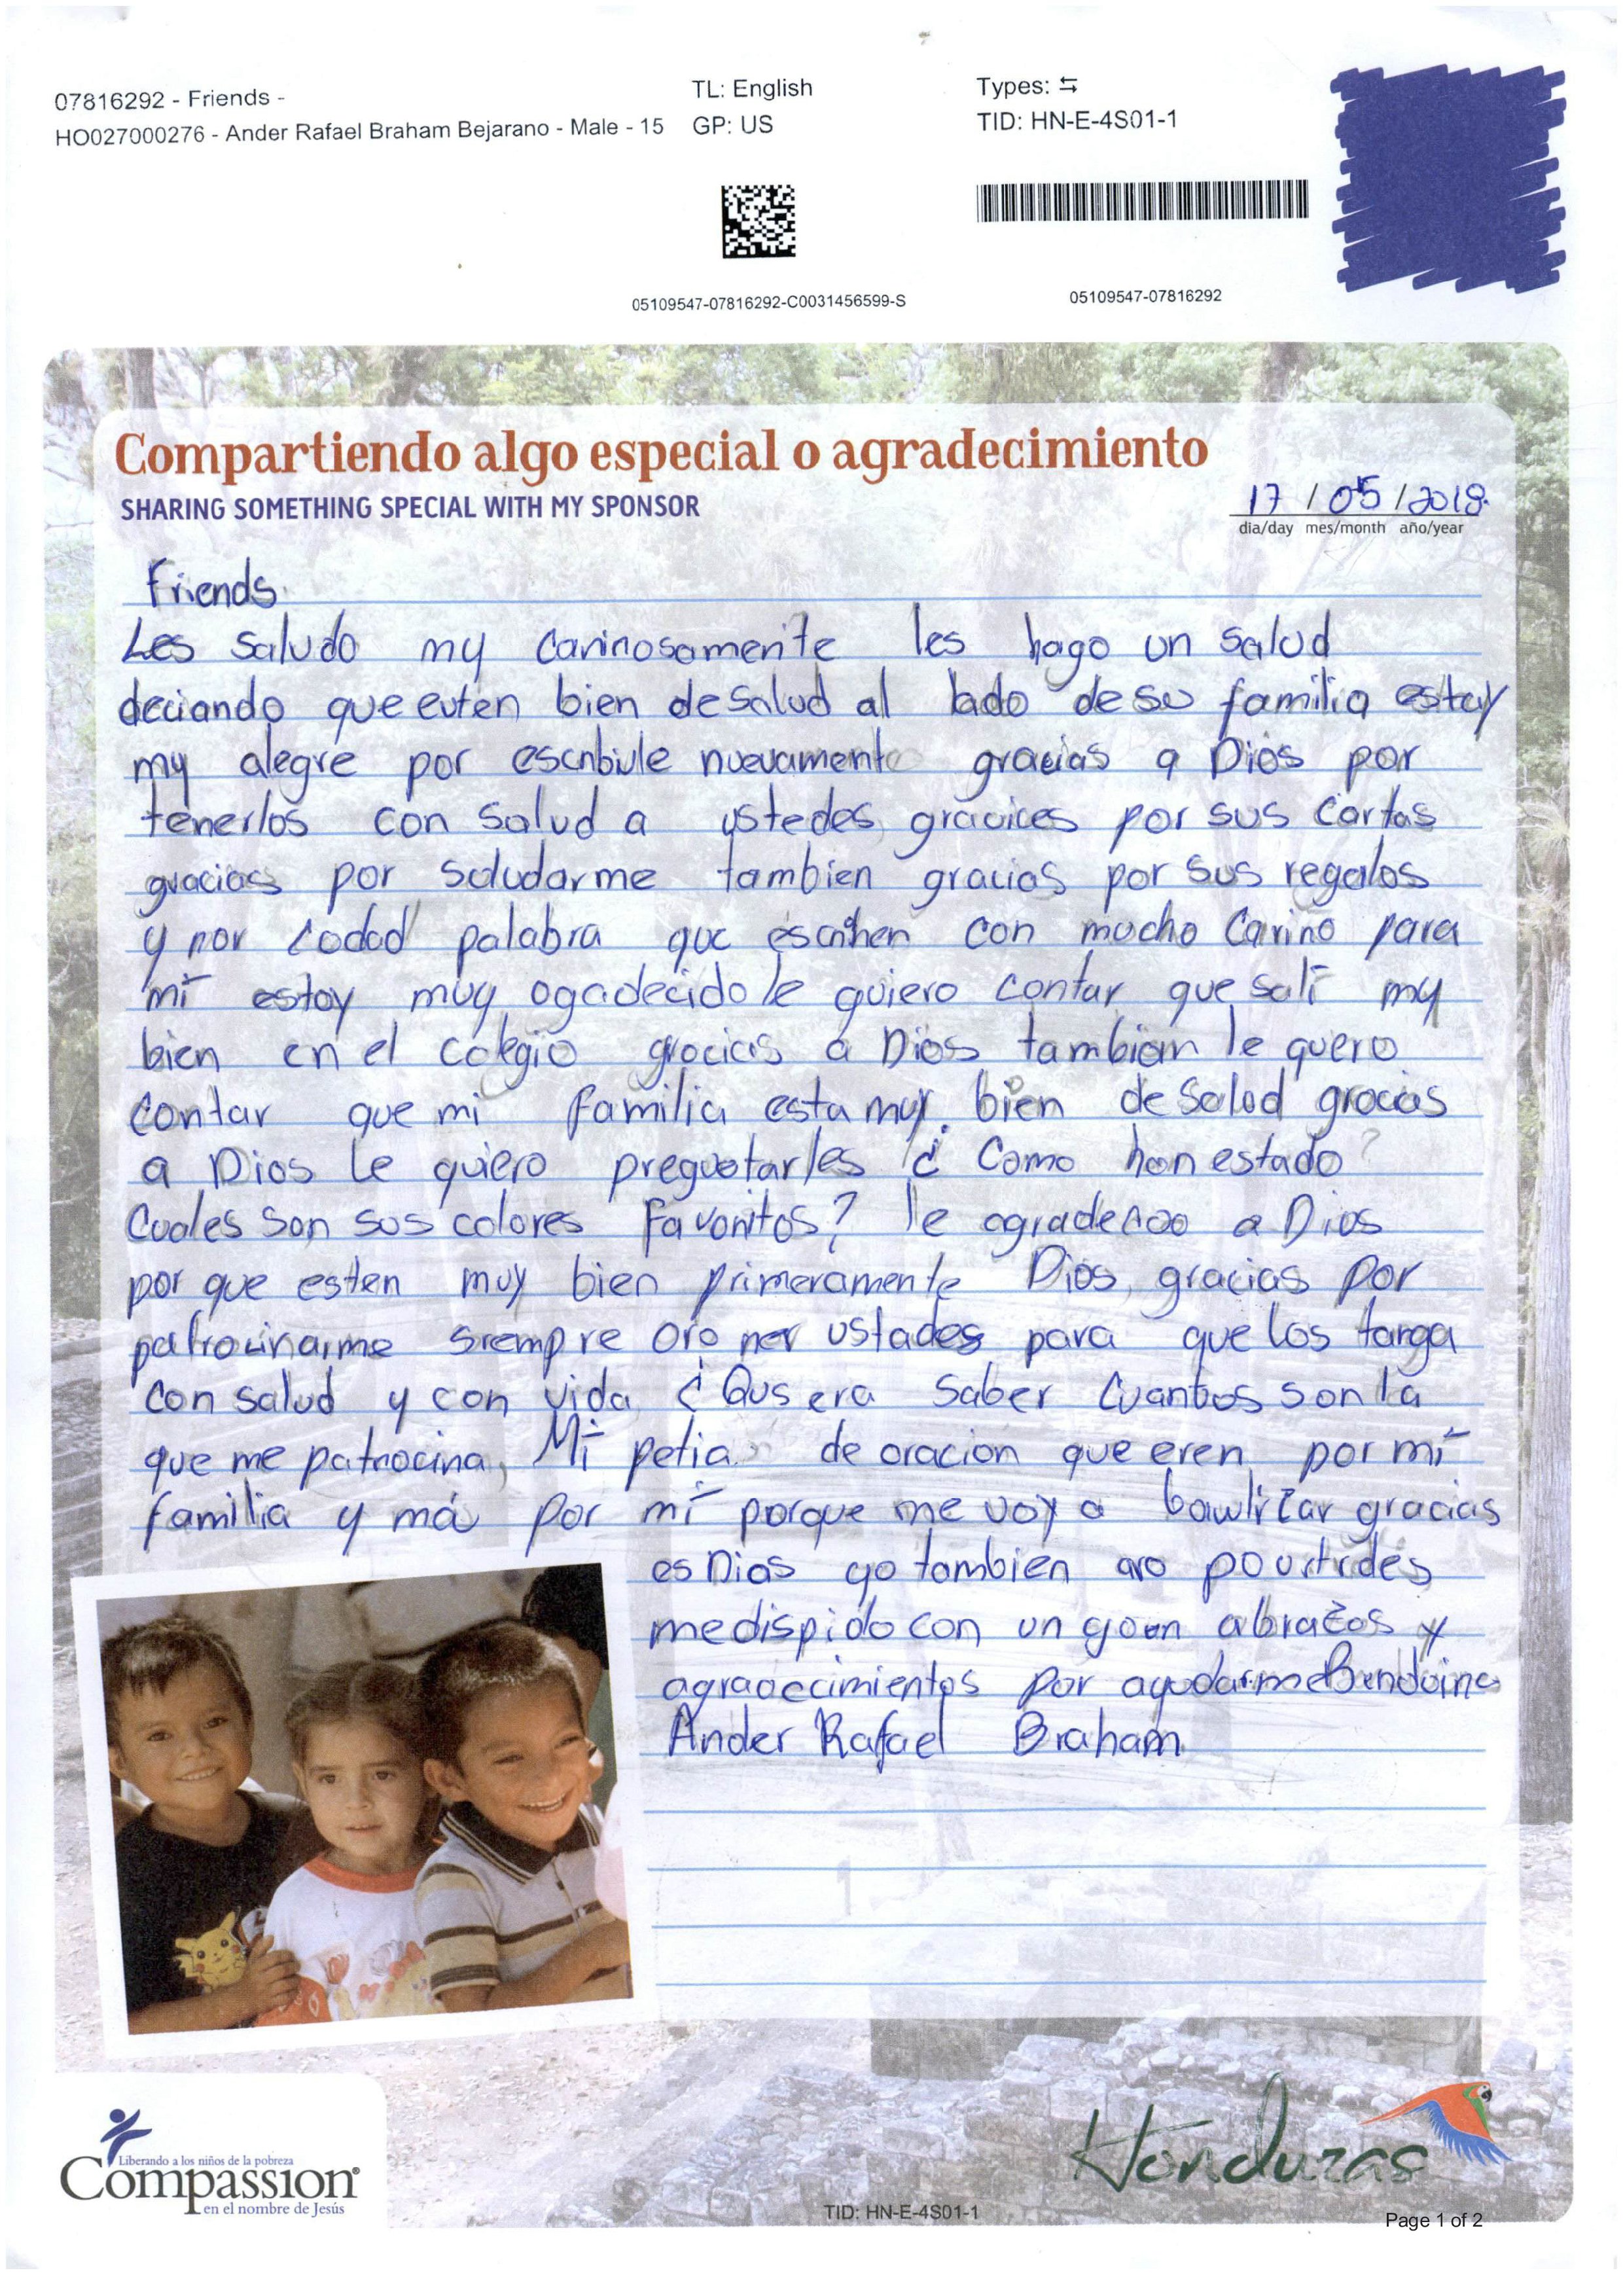 07816292 - Friends -
HO027000276 - Ander Rafael Braham Bejarano - Male - 15
TL: English
GP: US
Types: ⇆
TID: HN-E-4S01-1
05109547-07816292-C0031456599-S
05109547-07816292
Compartiendo algo especial o agradecimiento
SHARING SOMETHING SPECIAL WITH MY SPONSOR
17 / 05 / 2018
dia/day mes/month año/year
Friends
Les saludo my carinosamente les hago un salud
deciando que euten bien de salud al lado de su familia estay
my alegre por escribiule nuevamente gracias a Dios por
tenerlos con salud a ustedes gracices por sus cartas
gracias por saludarme tambien gracias por sus regalos
y por codad palabra que escrihen con mucho Carino para
mi estoy muy ogadecido le quiero contar que sali my
bien en el colegio grocicis a Dios tambiem le quero
contar que mi familia esta muy bien de salod grocias
a Dios Le quiero preguotarles ¿ Como han estado?
Cuales son sus colores favoritos? le agradecoo a Dios
por que esten muy bien primeramente Dios, gracias por
patrocinarme siempre oro per ustades para que los tanga
con salud y con vida ¿ Qusera saber cuantos son la
que me patrocina, Mi petia de oracion que eren por mi
familia y má por mi porque me voy a gracias
es Dios yo tambien oro
me dispido con un goan abrazos y
agradecimientos por ayudarme
Ander Rafael Braham
Liberando a los niños de la pobreza
Compassion®
en el nombre de Jesús
Honduras
TID: HN-E-4S01-1
Page 1 of 2